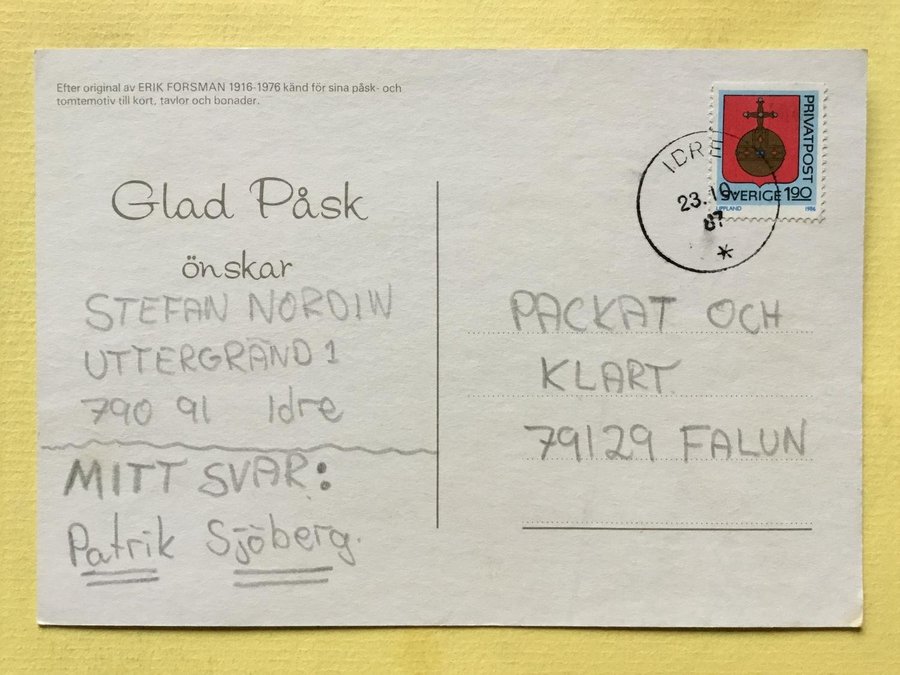 Efter original av ERIK FORSMAN 1916-1976 känd för sina påsk- och
tomtemotiv till kort, tavlor och bonader.
Glad Påsk
önskar
STEFAN NORDIN
UTTERGRÄND 1
790 91 Idre
MITT SVAR:
Patrik Sjöberg.
PRIVATPOST
SVERIGE 190
UPPLAND 1986
IDRE
23.10.
87
*
PACKAT OCH
KLART.
79129 FALUN